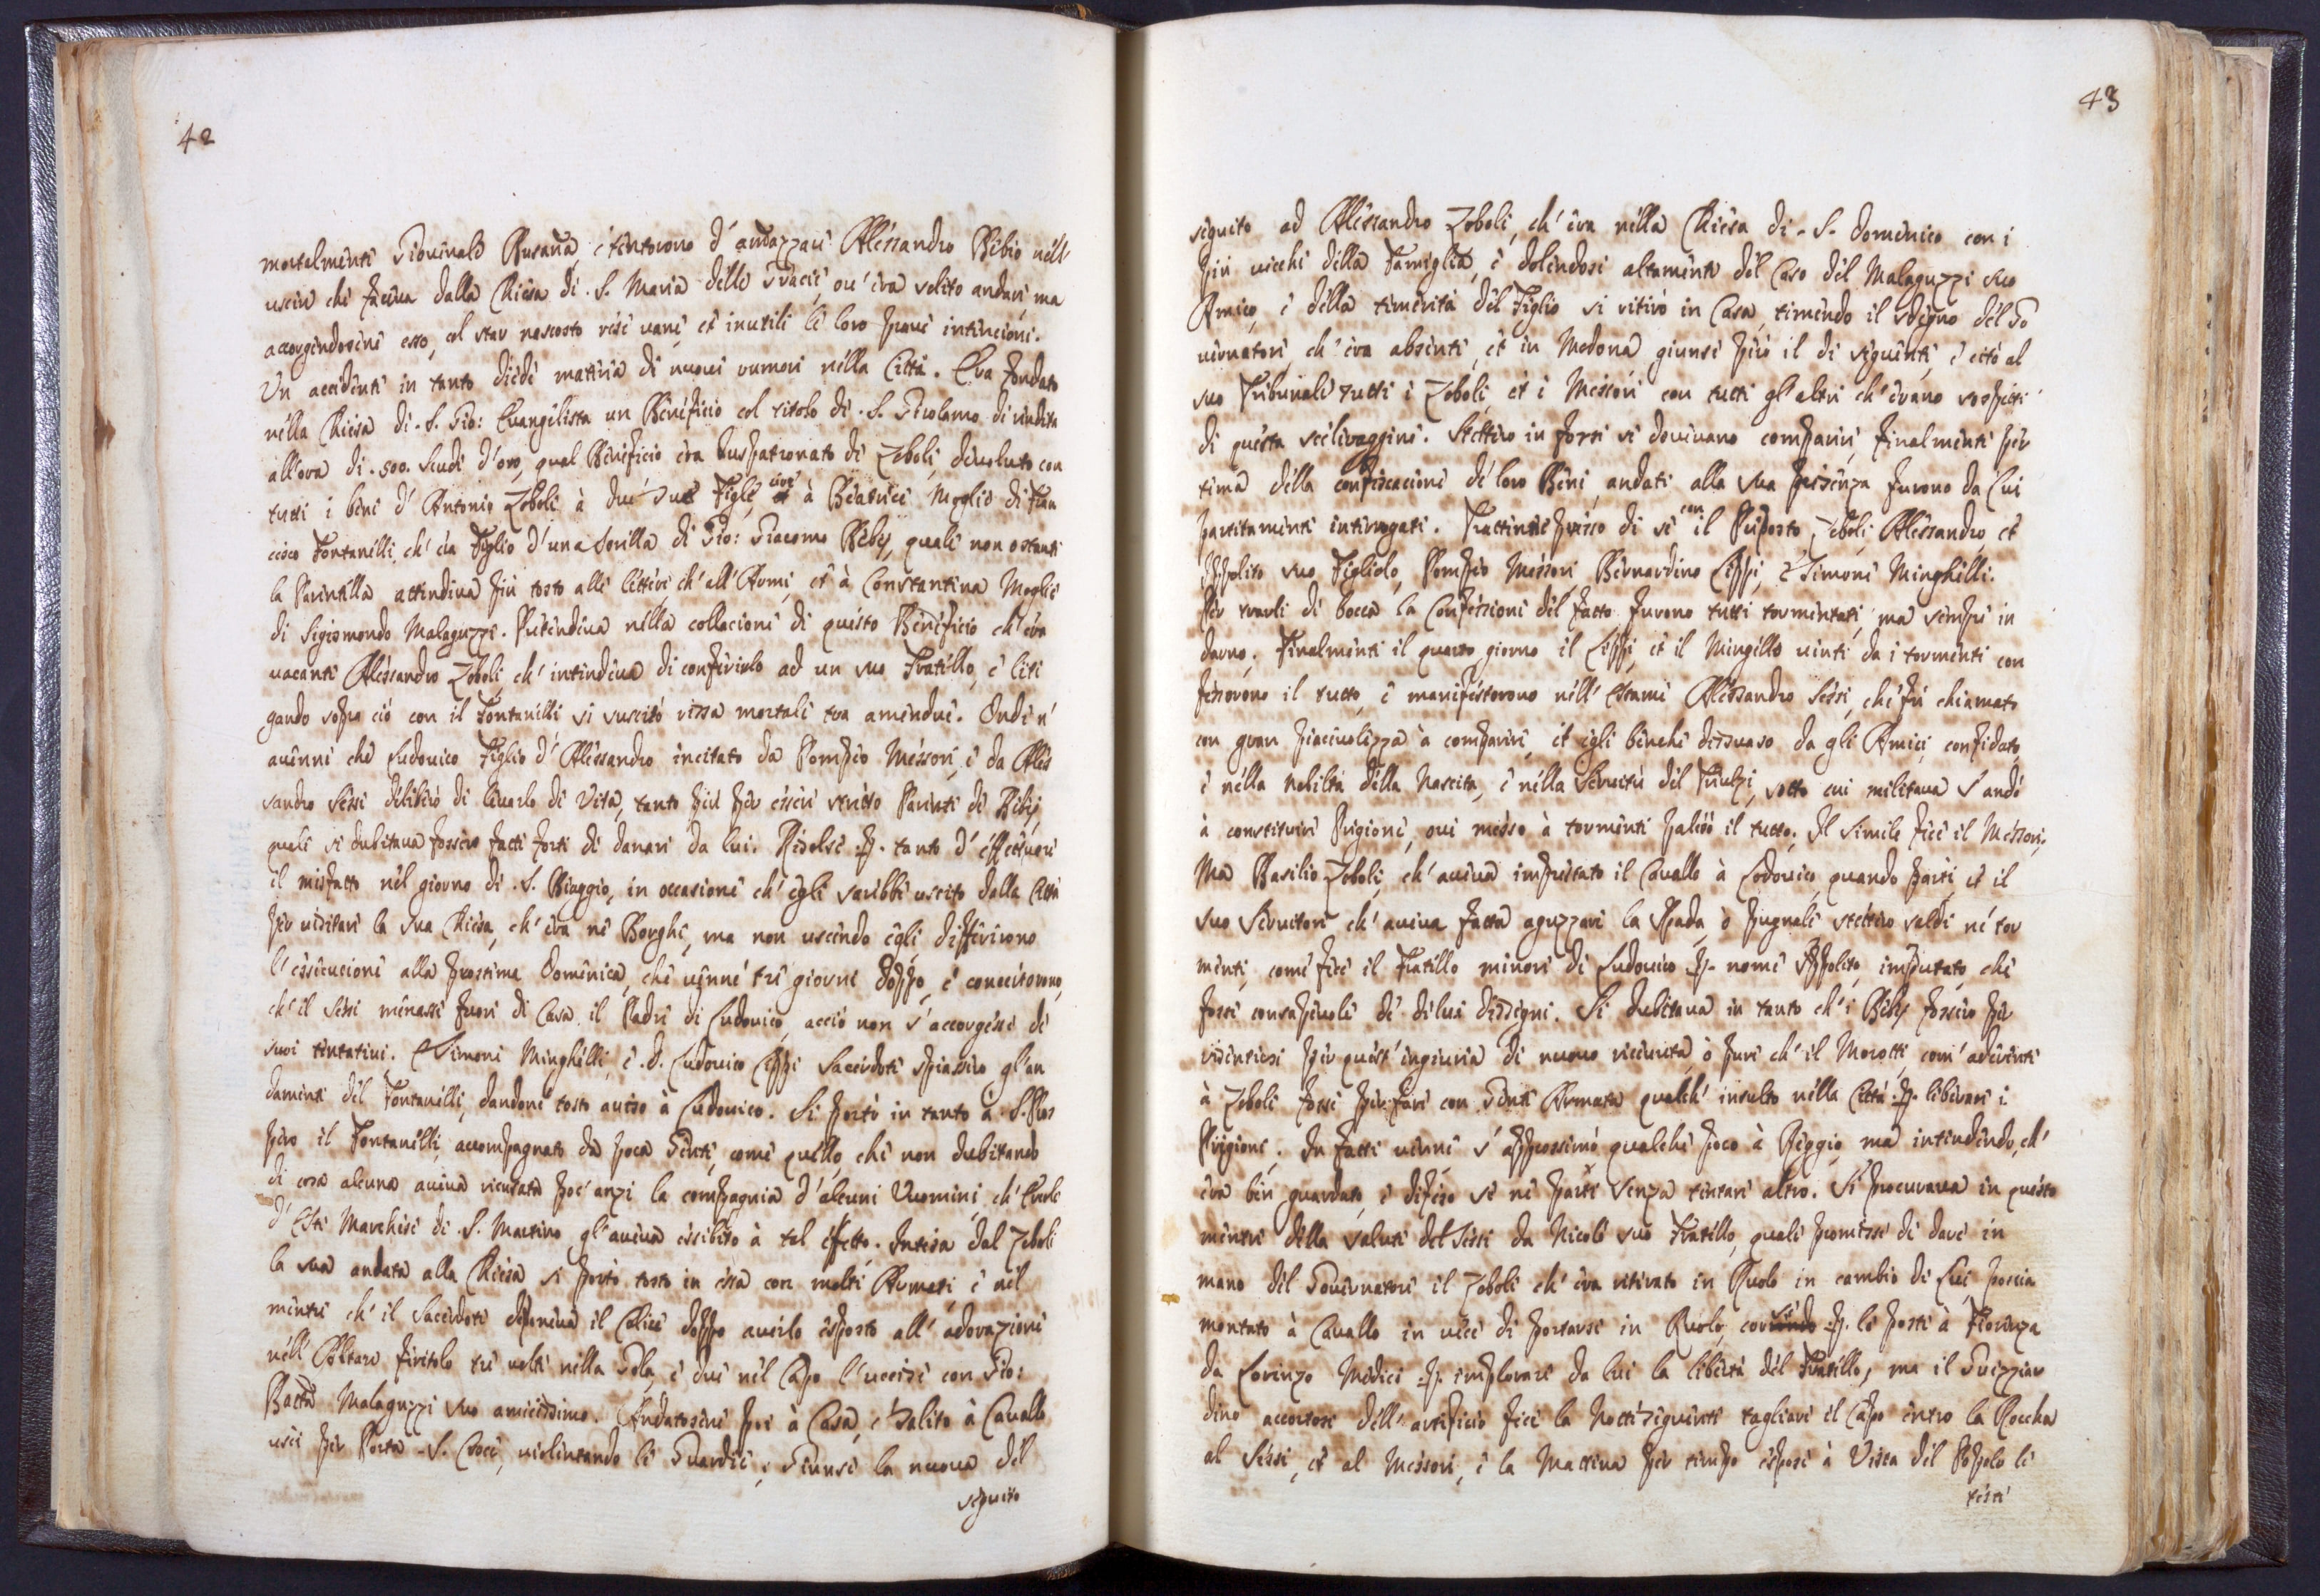 42
mortalmente Giovinale Rusana, e tentorono d'amazzare Alessandro Bebio nell'
uscir che faceva dalla Chiesa di .S. Maria delle Gracie, ov'era solito andare, ma
accorgendosene esso, col star nascosto rese vane, et inutili le loro prave intencioni.
Un accidente in tanto diede materia di nuovi rumori nella Città. Era fondato
nella Chiesa di .S. Gio: Evangelista un Beneficio col titolo di .S. Girolamo di rendita
all'ora di .500. Scudi d'oro, qual Beneficio era Iuspatronato di Zoboli, devoluto con
tutti i beni d'Antonio Zoboli à due sue Figle, cioè à Beatrice Moglie di Fran
cesco Fontanelli, ch'era Figlio d'una Sorella di Gio: Giacomo Bebij, quale non ostante
la Parentella attendeva più tosto alle lettere ch'all'Armi, et à Constantina Moglie
di Sigismondo Malaguzzi. Pretendeva nella collacione di questo Beneficio ch'era
vacante Alessandro Zoboli, ch'intendeva di conferirlo ad un suo Fratello, e liti
gando sopra ciò con il Fontanelli si suscitò rissa mortale tra amendue. Onde n'
avenne che Ludovico Figlio d'Alessandro incitato da Pompeo Messori, e da Ales
sandro Sessi deliberò di levarlo di Vita, tanto più per essere stretto Parente di Bebij,
quali si dubitava fossero fatti forti di danari da lui. Risolse .p. tanto d'effettuare
il misfatto nel giorno di .S. Biaggio, in occasione ch'egli sarebbe uscito dalla Città
per visitare la sua Chiesa, ch'era ne Borghi, ma non uscendo egli differirono
l'essecucione alla prossima Domenica, che venne trè giorni doppo, e concertorono,
ch'il Sessi menasse fuori di Casa il Padre di Ludovico, acciò non s'accorgesse de
suoi tentativi. E Simone Minghelli, e .D. Ludovico Cippi Sacerdote spiassero gl'an
damenti del Fontanelli, dandone tosto aviso à Ludovico. Si portò in tanto à .S. Pros
pero il Fontanelli, accompagnato da poca Gente, come quello, che non dubitando
di cosa alcuna aveva ricusata poc'anzi la compagnia d'alcuni Uuomini, ch'Ercole
d'Este Marchese di .S. Martino gl'aveva essibito à tal effetto. Intesa dal Zoboli
la sua andata alla Chiesa si portò tosto in essa con molti Armati, e nel
mentre ch'il Sacerdote deponeva il Calice doppo averlo esposto all'adorazione
nell'Altare feritolo trè volte nella Gola, e due nel Capo l'uccise con Gio:
Batta Malaguzzi suo amicissimo. Andatosene poi à Casa, e salito à Cavallo
uscì per Porta .S. Croce, violentando le Guardie; Giunse la nuova del
seguito
43
seguito ad Alessandro Zoboli, ch'era nella Chiesa di .S. Domenico con i
più vecchi della Famiglia, e dolendosi altamente del Caso del Malaguzzi suo
Amico, e della temerità del Figlio si ritirò in Casa, temendo il sdegno del Go
vernatore, ch'era absente, et in Modona giunse però il dì seguente, e citò al
suo Tribunale tutti i Zoboli, et i Messori con tutti gl'altri ch'erano sospetti
di questa sceleraggine. Stettero in forsi se dovevano comparire, finalmente per
tema della confiscacione de loro Beni, andati alla sua presenza furono da lui
partitamente interrogati. Trattenne presso di se con il Preposto Zoboli, Alessandro, et
Ippolito suo Figliolo, Pompeo Messori, Bernardino Cippi, e Simone Minghelli.
Per trarli di bocca la Confessione del fatto furono tutti tormentati, ma sempre in
darno. Finalmente il quarto giorno il Cippi, et il Mingello vinti da i tormenti con
fessorono il tutto, e manifestorono nell'essame Alessandro Sessi, che fù chiamato
con gran piacevolezza à comparire, et egli benche dissuaso da gli Amici, confidato,
e nella nobiltà della Nascita, e nella Servitù del Trivulzi, sotto cui militava s'andò
à constituire Prigione, ove messo à tormenti palesò il tutto. Il simile fece il Messori,
Ma Basilio Zoboli, ch'aveva imprestato il Cavallo à Lodovico, quando partì, et il
suo Servitore ch'aveva fatta aguzzare la Spada, ò pugnale stettero saldi ne tor
menti, come fece il Fratello minore di Ludovico .p. nome Ippolito, imputato, che
fosse consapevole de di lui dissegni. Si dubitava in tanto ch'i Bebij fossero per
risentirsi per quest'ingiuria di nuovo ricevuta, ò pure ch'il Morotti, com'aderente
à Zoboli fosse per fare con Gente Armata qualch'insulto nella Città .p. liberare i
Prigioni. In fatti venne s'approssimò qualche poco à Reggio, ma intendendo, ch'
era ben guardato, e difeso se ne partì senza tentare altro. Si procurava in questo
mentre della salute del Sessi da Nicolò suo Fratello, quale promesse di dare in
mano del Governatore il Zoboli ch'era ritirato in Ruolo in cambio di lui, poscia
montato à Cavallo in vece di portarsi in Ruolo, corse .p. le poste à Fiorenza
da Lorenzo Medici .p. implorare da lui la libertà del Fratello, ma il Guizziar
dino accortosi dell'artificio fece la Notte seguente tagliare il Capo entro la Roccha
al Sessi, et al Messori, e la Mattina per tempo espose à Vista del Popolo le
teste